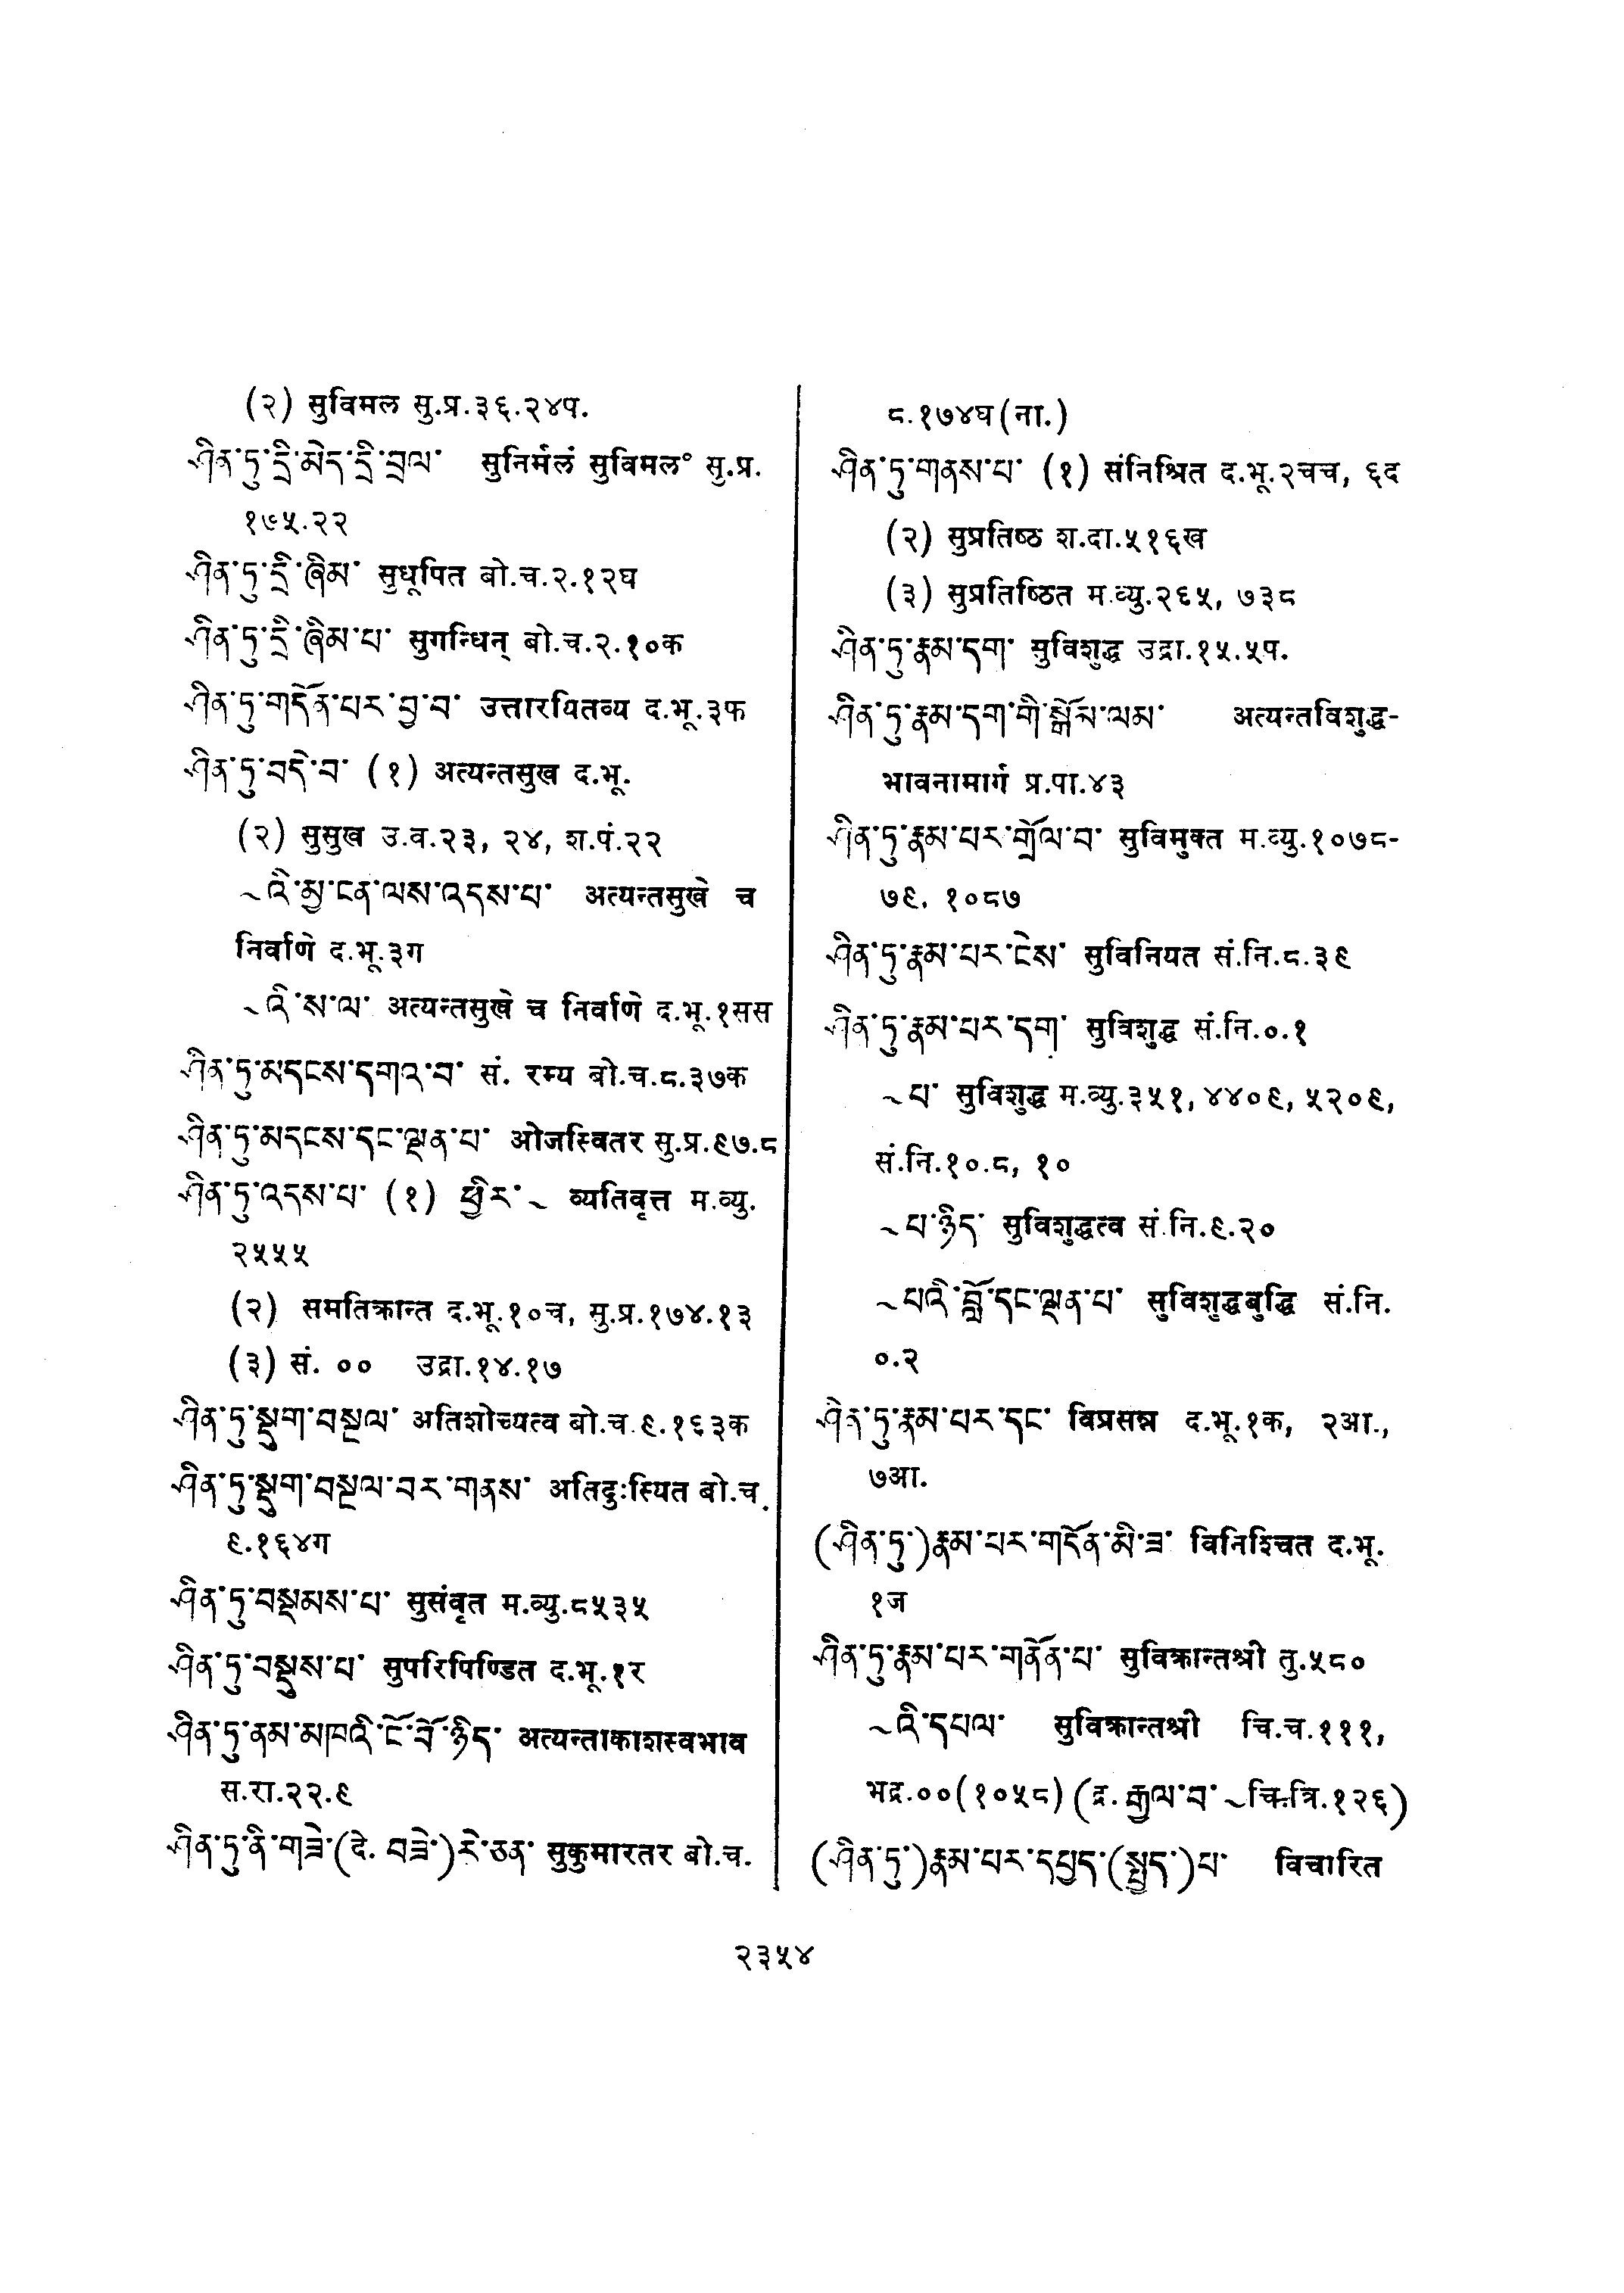 (२) सुविमल सु.प्र.३६.२४प.
ཤིན་ཏུ་དྲི་མེད་དྲི་བྲལ་ सुनिर्मलं सुविमल° सु.प्र.
१७५.२२
ཤིན་ཏུ་དྲི་ཞིམ་ सुधूपित बो.च.२.१२घ
ཤིན་ཏུ་དྲི་ཞིམ་པ་ सुगन्धिन् बो.च.२.१०क
ཤིན་ཏུ་གདོན་པར་བྱ་བ་ उत्तारयितव्य द.भू.३फ
ཤིན་ཏུ་བདེ་བ་ (१) अत्यन्तसुख द.भू.
(२) सुसुख उ.व.२३, २४, श.पं.२२
~འི་མྱ་ངན་ལས་འདས་པ་ अत्यन्तसुखे च
निर्वाणे द.भू.३ग
~འི་ས་ལ་ अत्यन्तसुखे च निर्वाणे द.भू.१सस
ཤིན་ཏུ་མདངས་དགའ་བ་ सं. रम्य बो.च.८.३७क
ཤིན་ཏུ་མདངས་དང་ལྡན་པ་ ओजस्वितर सु.प्र.९७.८
ཤིན་ཏུ་འདས་པ་ (१) ཕྱིར་~ व्यतिवृत्त म.व्यु.
२५५५
(२) समतिक्रान्त द.भू.१०च, सु.प्र.१७४.१३
(३) सं. ०० उद्रा.१४.१७
ཤིན་ཏུ་སྡུག་བསྔལ་ अतिशोच्यत्व बो.च.९.१६३क
ཤིན་ཏུ་སྡུག་བསྔལ་བར་གནས་ अतिदुःस्थित बो.च.
९.१६४ग
ཤིན་ཏུ་བསྡམས་པ་ सुसंवृत म.व्यु.८५३५
ཤིན་ཏུ་བསྡུས་པ་ सुपरिपिण्डित द.भू.१र
ཤིན་ཏུ་ནམ་མཁའི་ངོ་བོ་ཉིད་ अत्यन्ताकाशस्वभाव
स.रा.२२.९
ཤིན་ཏུ་ནི་གཟེ་(दे. བཟེ་)རེ་ཅན་ सुकुमारतर बो.च.
८.१७४घ(ना.)
ཤིན་ཏུ་གནས་པ་ (१) संनिश्रित द.भू.२चच, ६द
(२) सुप्रतिष्ठ श.दा.५१६ख
(३) सुप्रतिष्ठित म.व्यु.२६५, ७३८
ཤིན་ཏུ་རྣམ་དག་ सुविशुद्ध उद्रा.१५.५प.
ཤིན་ཏུ་རྣམ་དག་གི་སྒོམ་ལམ་ अत्यन्तविशुद्ध-
भावनामार्ग प्र.पा.४३
ཤིན་ཏུ་རྣམ་པར་གྲོལ་བ་ सुविमुक्त म.व्यु.१०७८-
७९. १०८७
ཤིན་ཏུ་རྣམ་པར་ངེས་ सुविनियत सं.नि.८.३९
ཤིན་ཏུ་རྣམ་པར་དག་ सुविशुद्ध सं.नि.०.१
~པ་ सुविशुद्ध म.व्यु.३५१, ४४०९, ५२०९,
सं.नि.१०.८, १०
~པ་ཉིད་ सुविशुद्धत्व सं.नि.९.२०
~པའི་བློ་དང་ལྡན་པ་ सुविशुद्धबुद्धि सं.नि.
०.२
ཤིན་ཏུ་རྣམ་པར་དང་ विप्रसन्न द.भू.१क, २आ.,
७आ.
(ཤིན་ཏུ་)རྣམ་པར་གདོན་མི་ཟ་ विनिश्चित द.भू.
१ज
ཤིན་ཏུ་རྣམ་པར་གནོན་པ་ सुविक्रान्तश्री तु.५८०
~འི་དཔལ་ सुविक्रान्तश्री चि.च.१११,
भद्र.००(१०५८) (द्र. རྒྱལ་བ་~चि.त्रि.१२६)
(ཤིན་ཏུ་)རྣམ་པར་དཔྱད་(སྤྱད་)པ་ विचारित
२३५४